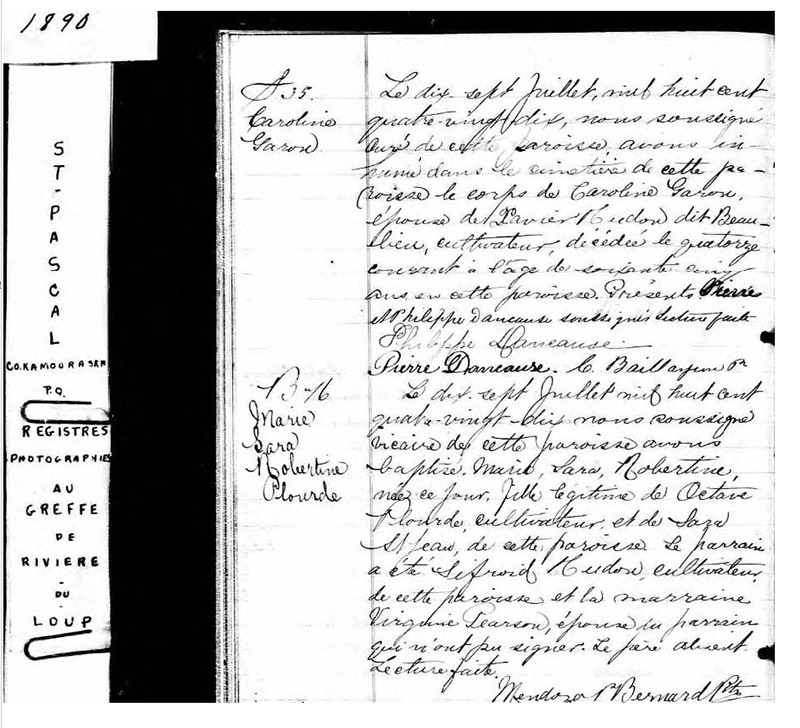 1890
ST-PASCAL
CO. KAMOURASKA
P.Q.
REGISTRES
PHOTOGRAPHIES
AU
GREFFE
DE
RIVIERE
-DU-
LOUP
S 35.
Caroline
Garon
Le dix-sept Juillet, mil huit cent
quatre-vingt-dix, nous soussigné
curé de cette paroisse, avons in-
humé dans le cimetière de cette pa-
roisse le corps de Caroline Garon,
épouse de Xavier Hudon dit Beau-
lieu, cultivateur, décédée le quatorze
courant à l'âge de soixante cinq
ans, en cette paroisse. Présents Pierre
et Philippe Dancause soussignés Lecture faite
Philippe Dancause
Pierre Dancause. C. Baillargeon Ptr
B 76
Marie
Sara
Robertine
Plourde
Le dix-sept Juillet mil huit cent
quatre-vingt-dix nous soussigné
vicaire de cette paroisse avons
baptisé Marie, Sara, Robertine,
née ce jour, fille légitime de Octave
Plourde, cultivateur, et de Sara
St Jean, de cette paroisse. Le parrain
a été Sifroid Hudon, cultivateur
de cette paroisse et la marraine
Virginie Pearson, épouse du parrain
qui n'ont pu signer. Le père absent.
Lecture faite.
Mendoza P. Bernard Ptre